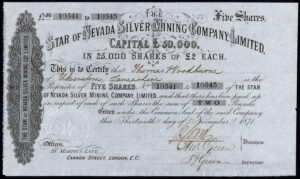 Nos 10541 to 10545
Five Shares.
THE
STAR OF NEVADA SILVER MINING COMPANY, LIMITED.
CAPITAL £50,000.
IN 25,000 SHARES OF £2 EACH.
This is to Certify that Thomas
Ulverstone Lancashire is the
Proprietor of FIVE SHARES 10541 to 10545 of THE STAR
OF NEVADA SILVER MINING COMPANY, LIMITED, and that there has been paid up
in respect of each of such Shares the sum of TWO Pounds.
GIVEN under the Common Seal of the said Company
this Thirteenth day of November 1871
Directors.
Green
Offices,
MARTIN'S LANE,
CANNON STREET, LONDON, E.C.
Green
SECRETARY
STAR OF NEVADA SILVER MINING CO. LIMITED